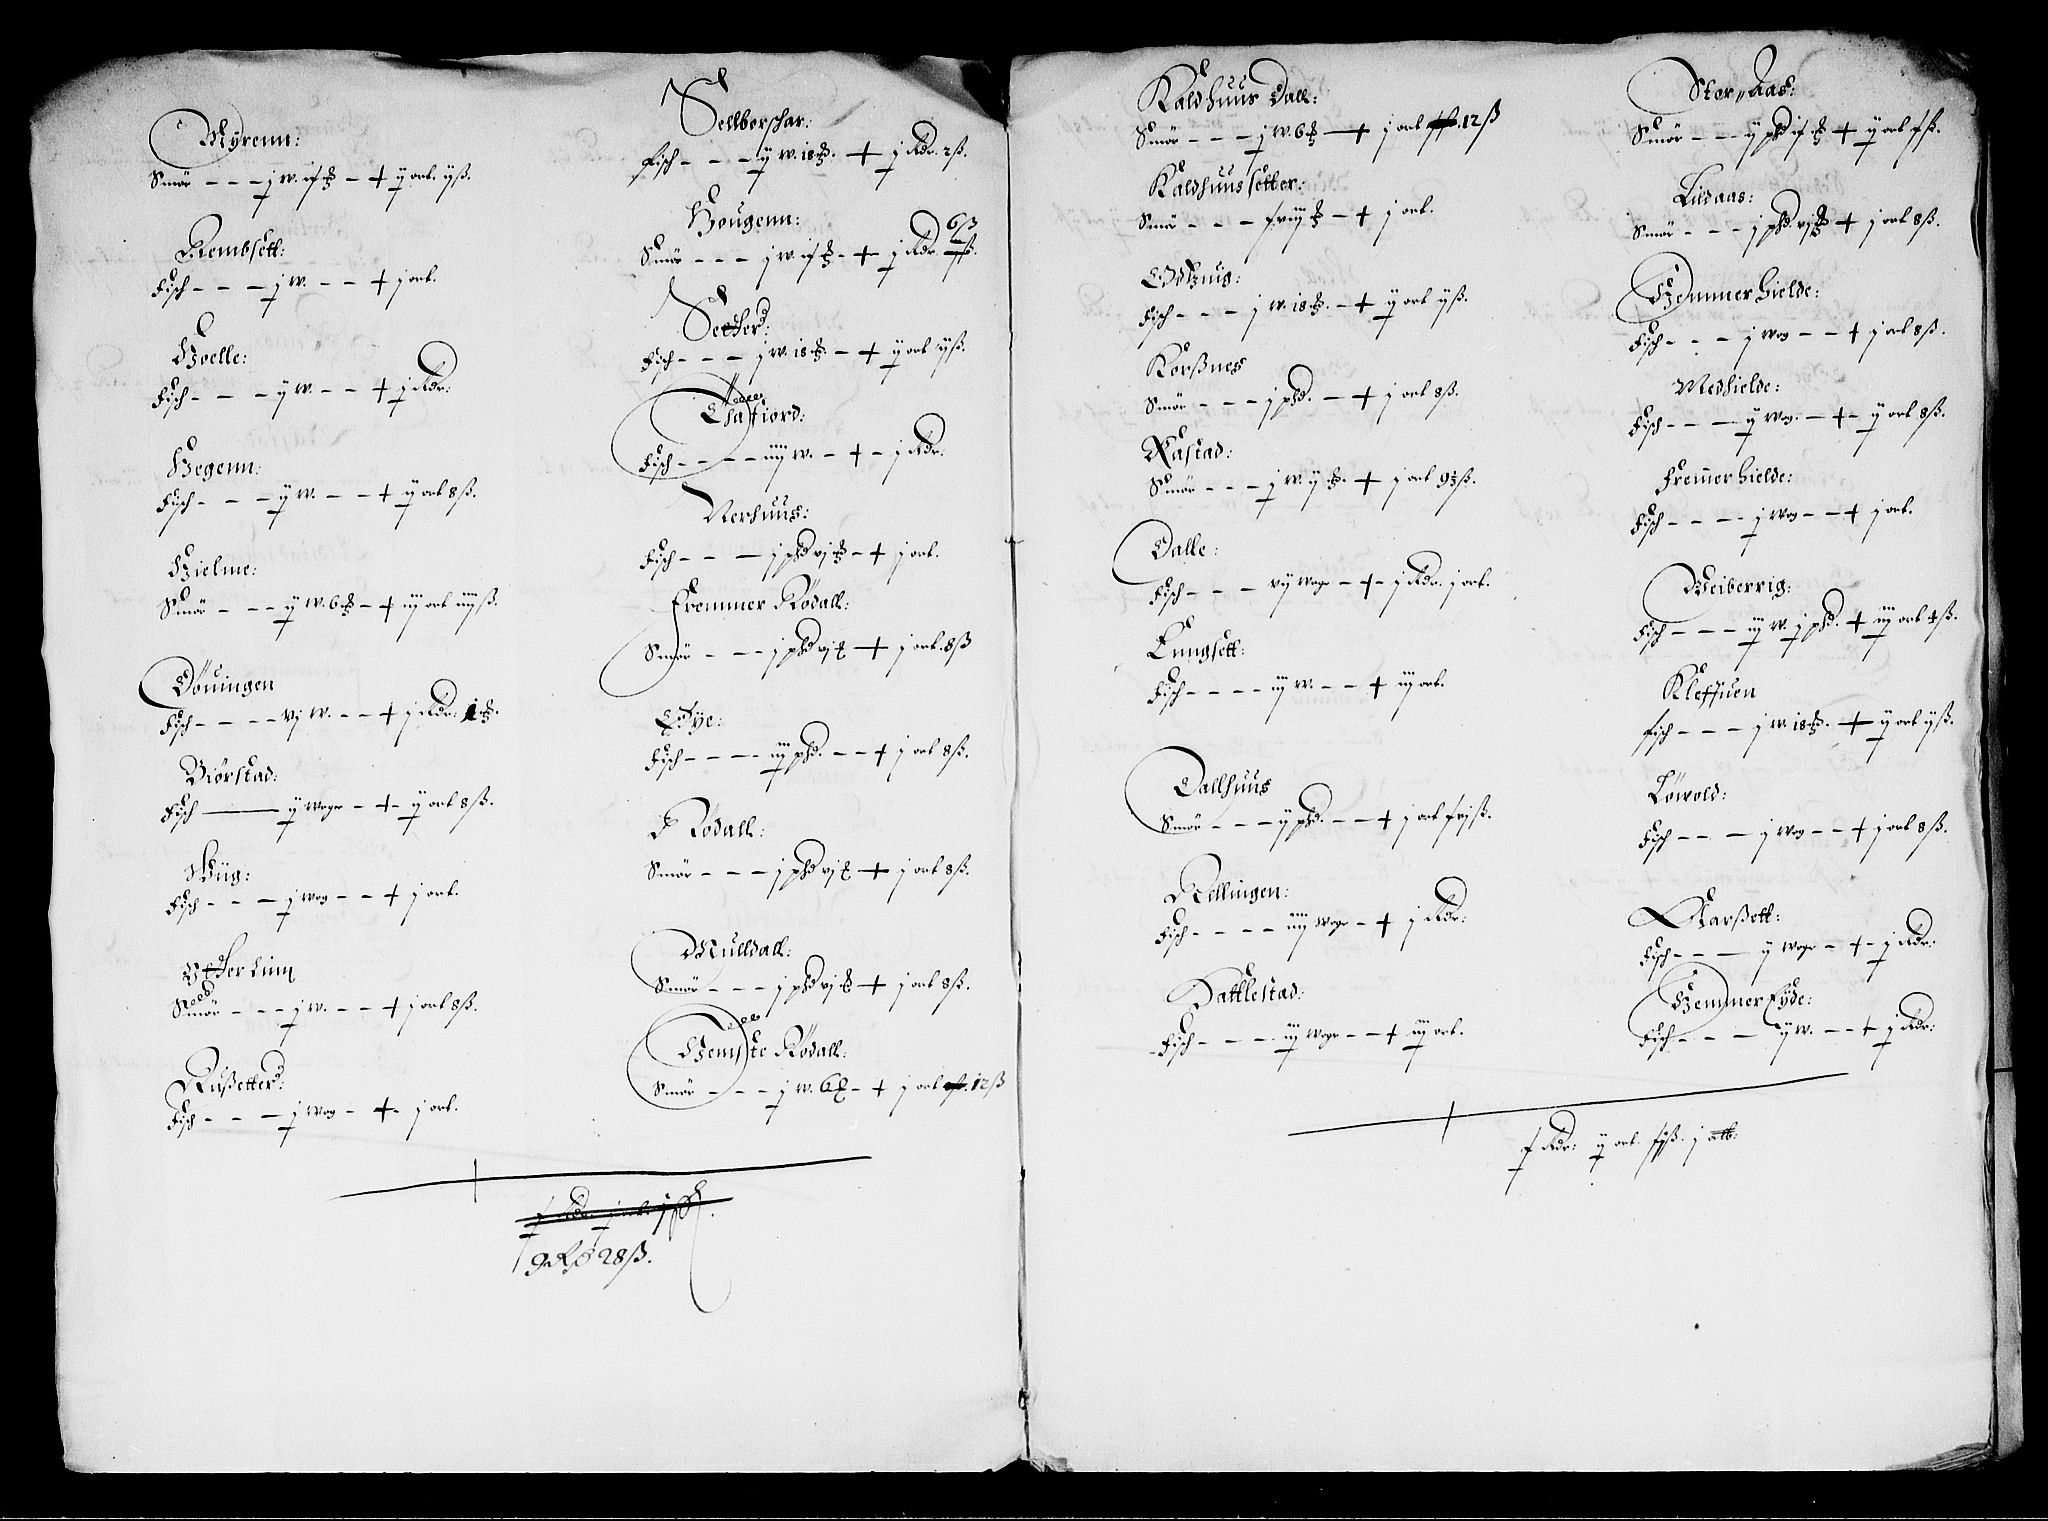 Myrenn:
Smör - - - j w. if ℔ - + ij ort. ijß.
Rembsett:
Fisch - - - j w. - - + j ort.
Hoelle:
Fisch - - - ij w. - - + j Rdr:
Hegenn:
Fisch - - - ij w. - - + ij ort 8ß.
Hielme:
Smör - - - ij w. 6 ℔ - + iij ort iiijß.
Döuingen
Fisch - - - - vj w. - - + j Rdr: 1 ℔.
Biörstad:
Fisch ——— ij woger - + - ij ort 8ß.
Wüg:
Fisch - - - j wog - - + j ort.
Ytterlinn
Smör - - - j w. - - + j ort 8ß.
Rußetter:
Fisch - - - j wog - + - j ort.
Sellberschar:
Fisch - - - ij w. 18 ℔. + j Rdr. 2ß.
Hougenn:
Smör - - - j w. if ℔ - + - j Rdr. 6ß
Setter:
Fisch - - - j w. 18 ℔ - + ij ort ijß.
Thafiord:
Fisch - - - - iiij w. - + - j Rdr:
Nerhuus:
Fisch - - - j phd vj ℔ - + j ort.
Fremmer Rödall:
Smör - - - j phd vj ℔ + j ort. 8ß
Øye:
Fisch - - - - iij phd. - - + j ort 8ß.
Rödall:
Smör - - - j phd vj ℔ + j ort 8ß.
Mulldall:
Smör - - - j phd vj ℔ + j ort 8ß.
Hemste Rödall:
Smör - - - j w. 6 ℔ - + j ort 12ß
9 Rd 28ß.
Kaldhuus Dall:
Smör - - - j w. 6 ℔ - + j ort 12ß
Kaldhuussetter:
Smör - - - fviij ℔ - + j ort.
Fisch - - - j w. 18 ℔. - + ij ort ijß.
Korßnes
Smör - - - j phd. - + j ort 8ß.
Rastad:
Smör - - - j w. ij ℔. + j ort 9½ß.
Dalle:
Fisch - - - vij woger - + - j Rdr. j ort.
Lungsett:
Fisch - - - - iij w. - - + iij ort.
Dallhuus
Smör - - - ij phd. - - + j ort fvjß.
Rellingen:
Fisch - - - - iiij woger - + j Rdr:
Dattlestad:
Fisch - - - - iij woger - - + iij ort.
Stor Aas:
Smör - - - ij phd if ℔ + ij ort fß.
Lidaas:
Smör - - - j phd. vj ℔ + j ort 8ß.
Hemmer hielde:
Fisch - - - j wog - - + j ort 8ß.
Medhielde:
Fisch - - - - ij wog. - + - ij ort 8ß.
Fremer hielde:
Fisch - - - - j wog - - + j ort.
Weiberrig:
Fisch - - - iij w. j phd. + iij ort 4ß.
Kleffuen
Fisch - - - j w. 18 ℔. + ij ort ijß.
Löwold:
Fisch - - - j wog - - + j ort 8ß.
Fisch - - - ij woger - + - j Rdr:
Hemmer Eyde:
Fisch - - - - ij w. - - + j Rdr:
f Rdr: ij ort. fijß. j alb: